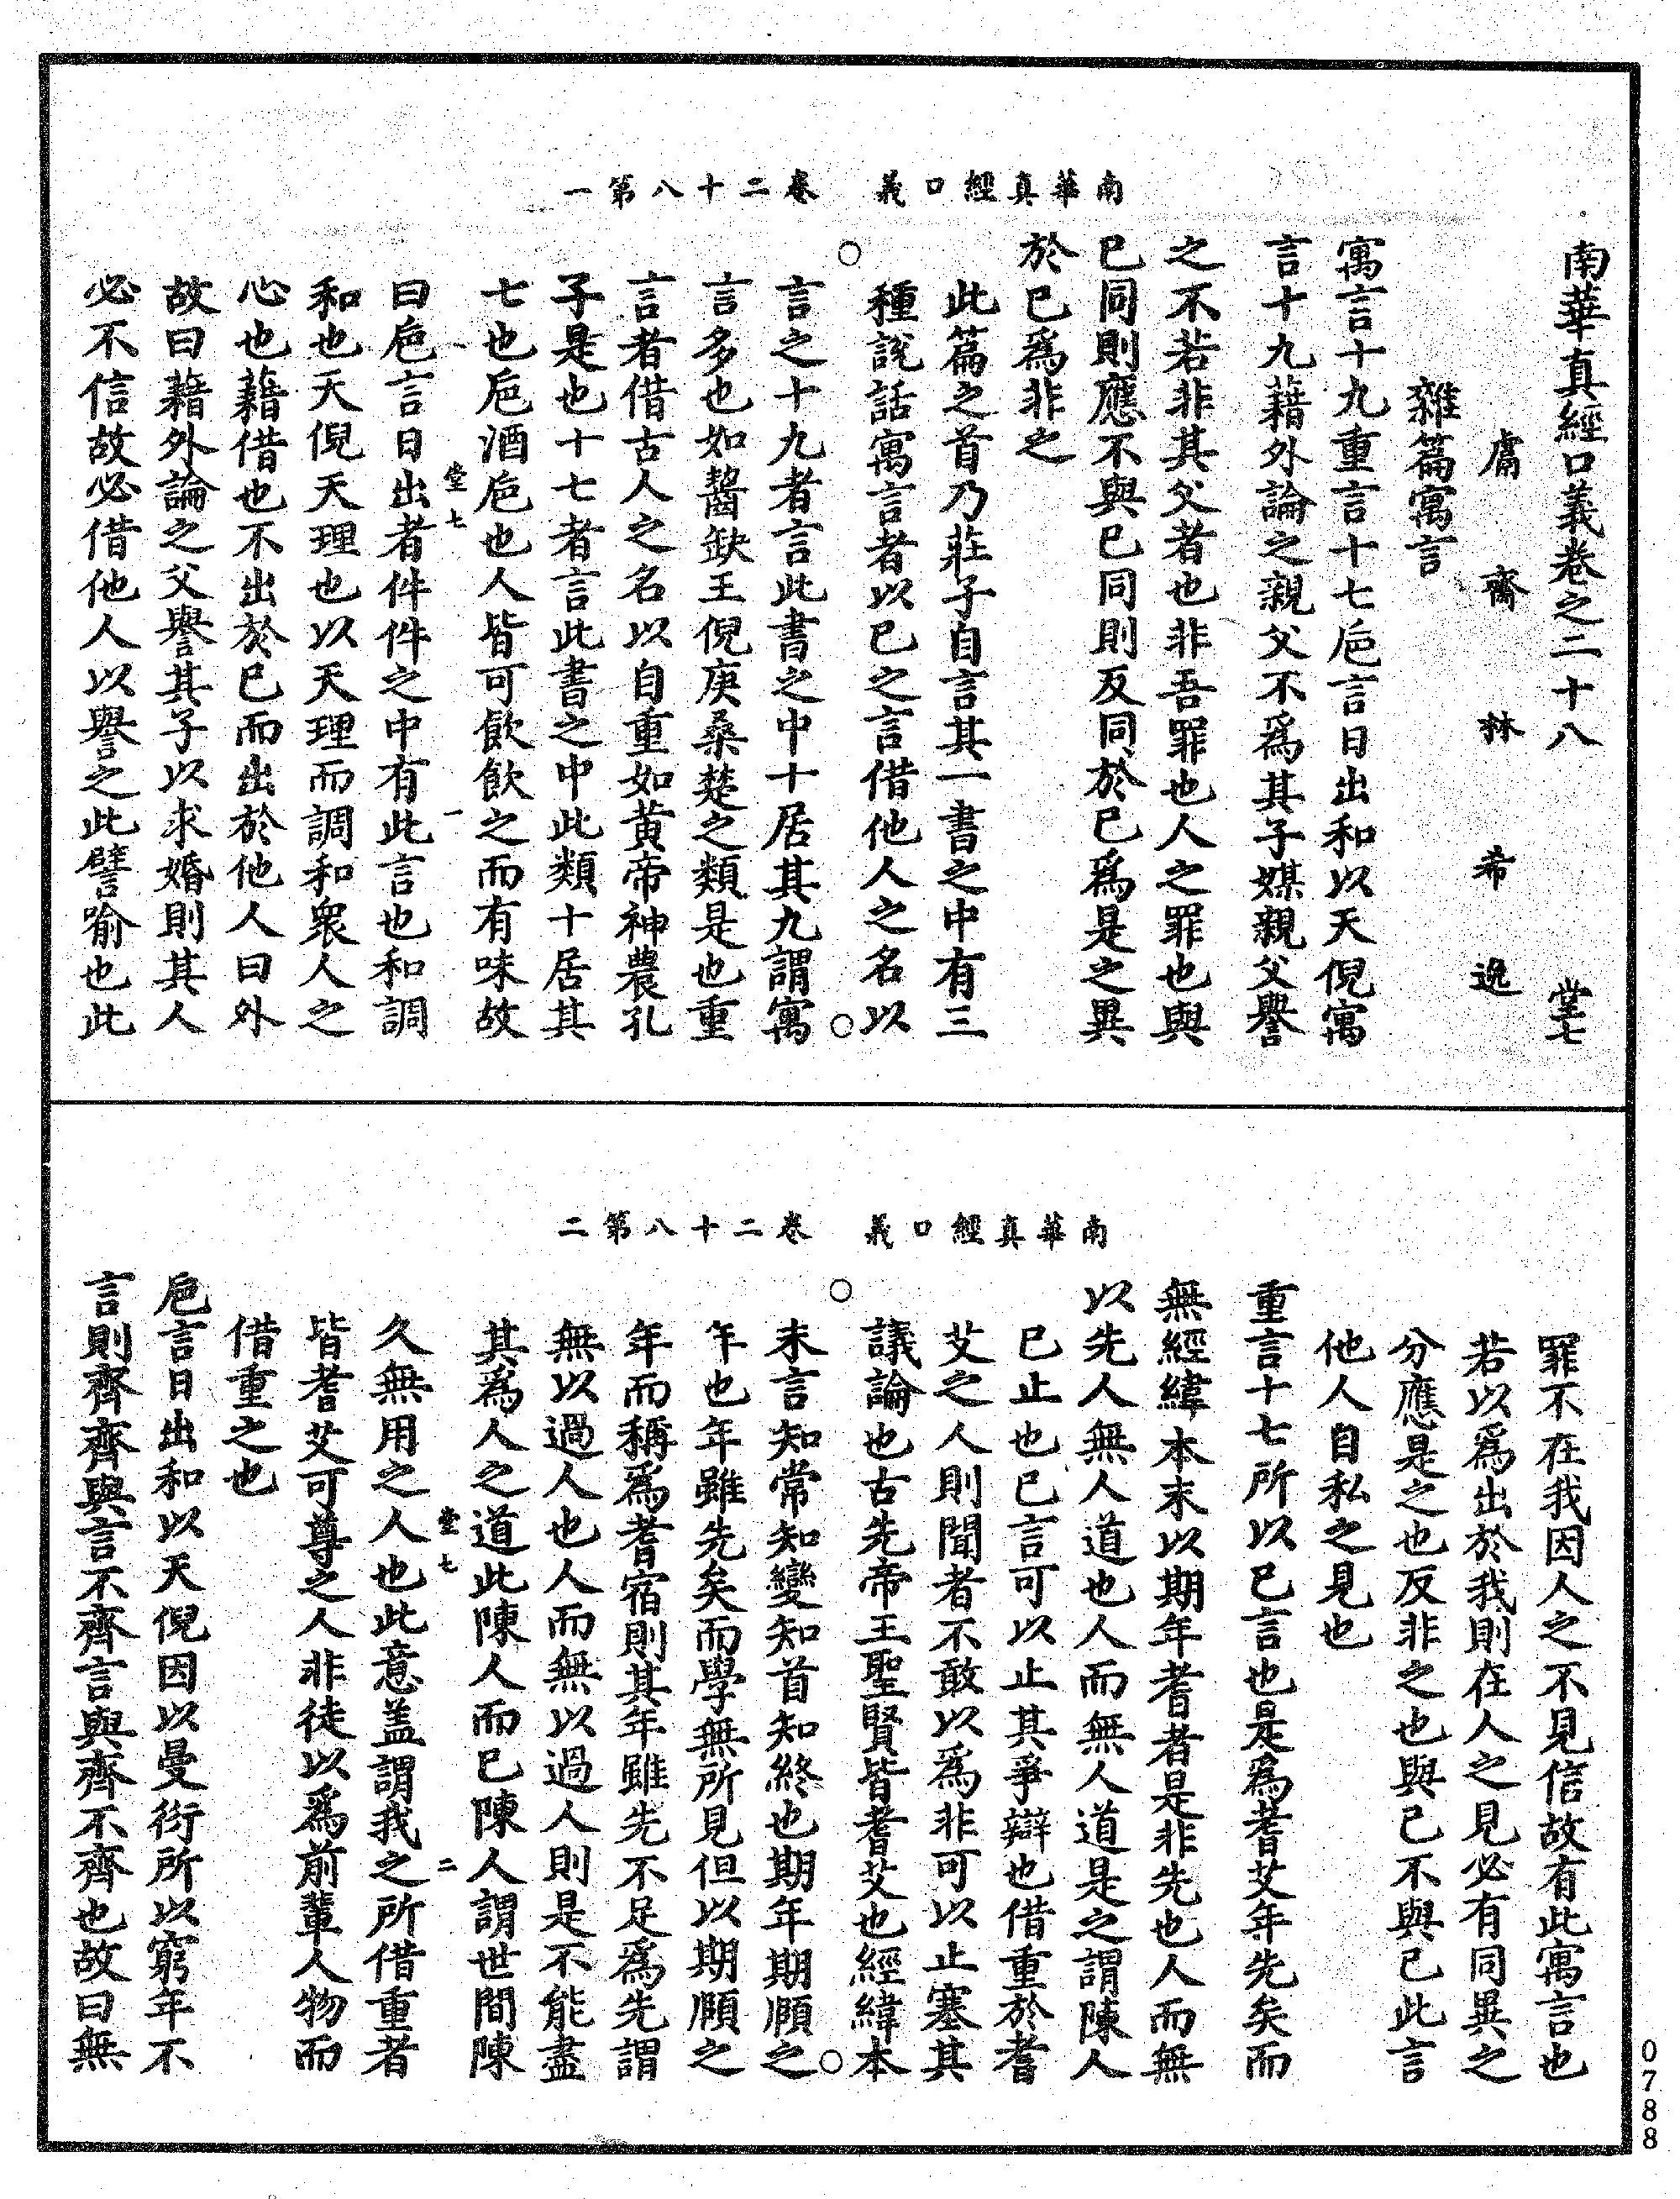 南華真經口義　卷二十八第一
南華真經口義卷之二十八　堂七
鬳齋林希逸
雜篇寓言
寓言十九重言十七巵言日出和以天倪寓
言十九藉外論之親父不爲其子媒親父譽
之不若非其父者也非吾罪也人之罪也與
已同則應不與已同則反同於已爲是之異
於已爲非之
此篇之首乃莊子自言其一書之中有三
種說話寓言者以已之言借他人之名以
言之十九者言此書之中十居其九謂寓
言多也如齧缺王倪庚桑楚之類是也重
言者借古人之名以自重如黃帝神農孔
子是也十七者言此書之中此類十居其
七也巵酒巵也人皆可飲飲之而有味故
堂七　一
曰巵言日出者件件之中有此言也和調
和也天倪天理也以天理而調和衆人之
心也藉借也不出於已而出於他人曰外
故曰藉外論之父譽其子以求婚則其人
必不信故必借他人以譽之此譬喻也此
南華真經口義　卷二十八第二
罪不在我因人之不見信故有此寓言也
若以爲出於我則在人之見必有同異之
分應是之也反非之也與已不與已此言
他人自私之見也
重言十七所以已言也是爲耆艾年先矣而
無經緯本末以期年耆者是非先也人而無
以先人無人道也人而無人道是之謂陳人
已止也已言可以止其爭辯也借重於耆
艾之人則聞者不敢以爲非可以止塞其
議論也古先帝王聖賢皆耆艾也經緯本
末言知常知變知首知終也期年期頥之
年也年雖先矣而學無所見但以期頥之
年而稱爲耆宿則其年雖先不足爲先謂
無以過人也人而無以過人則是不能盡
其爲人之道此陳人而已陳人謂世間陳
堂七　二
久無用之人也此意盖謂我之所借重者
皆耆艾可尊之人非徒以爲前輩人物而
借重之也
巵言日出和以天倪因以曼衍所以窮年不
言則齊齊與言不齊言與齊不齊也故曰無
0788